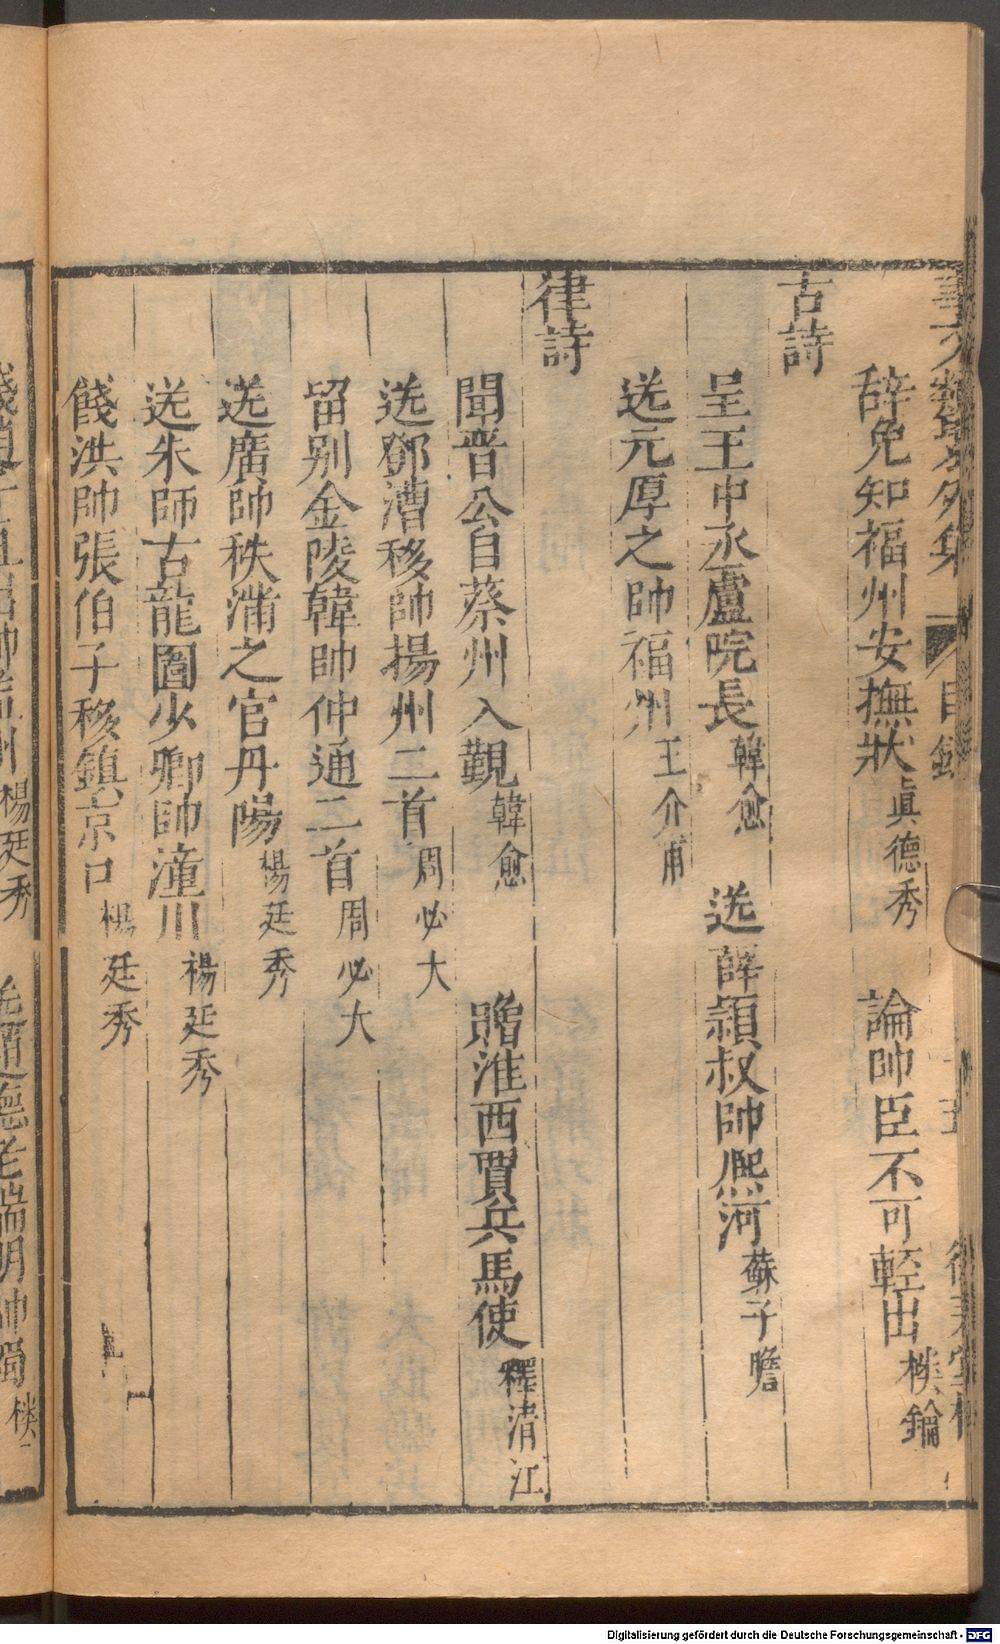 辭免知福州安撫狀眞德秀　論帥臣不可輕出樓鑰
古詩
呈王中丞盧院長韓愈　送薛頴叔帥熈河蘇子瞻
送元厚之帥福州王介甫
律詩
聞晋公自蔡州入覲韓愈　贈淮西賈兵馬使釋清江
送鄧漕移帥揚州二首周必大
留别金陵韓帥仲通二首周必大
送廣帥秩滿之官丹陽楊廷秀
送朱師古龍圖少卿帥潼川楊廷秀
餞洪帥張伯子移鎮京口楊廷秀
Digitalisierung gefördert durch die Deutsche Forschungsgemeinschaft - DFG